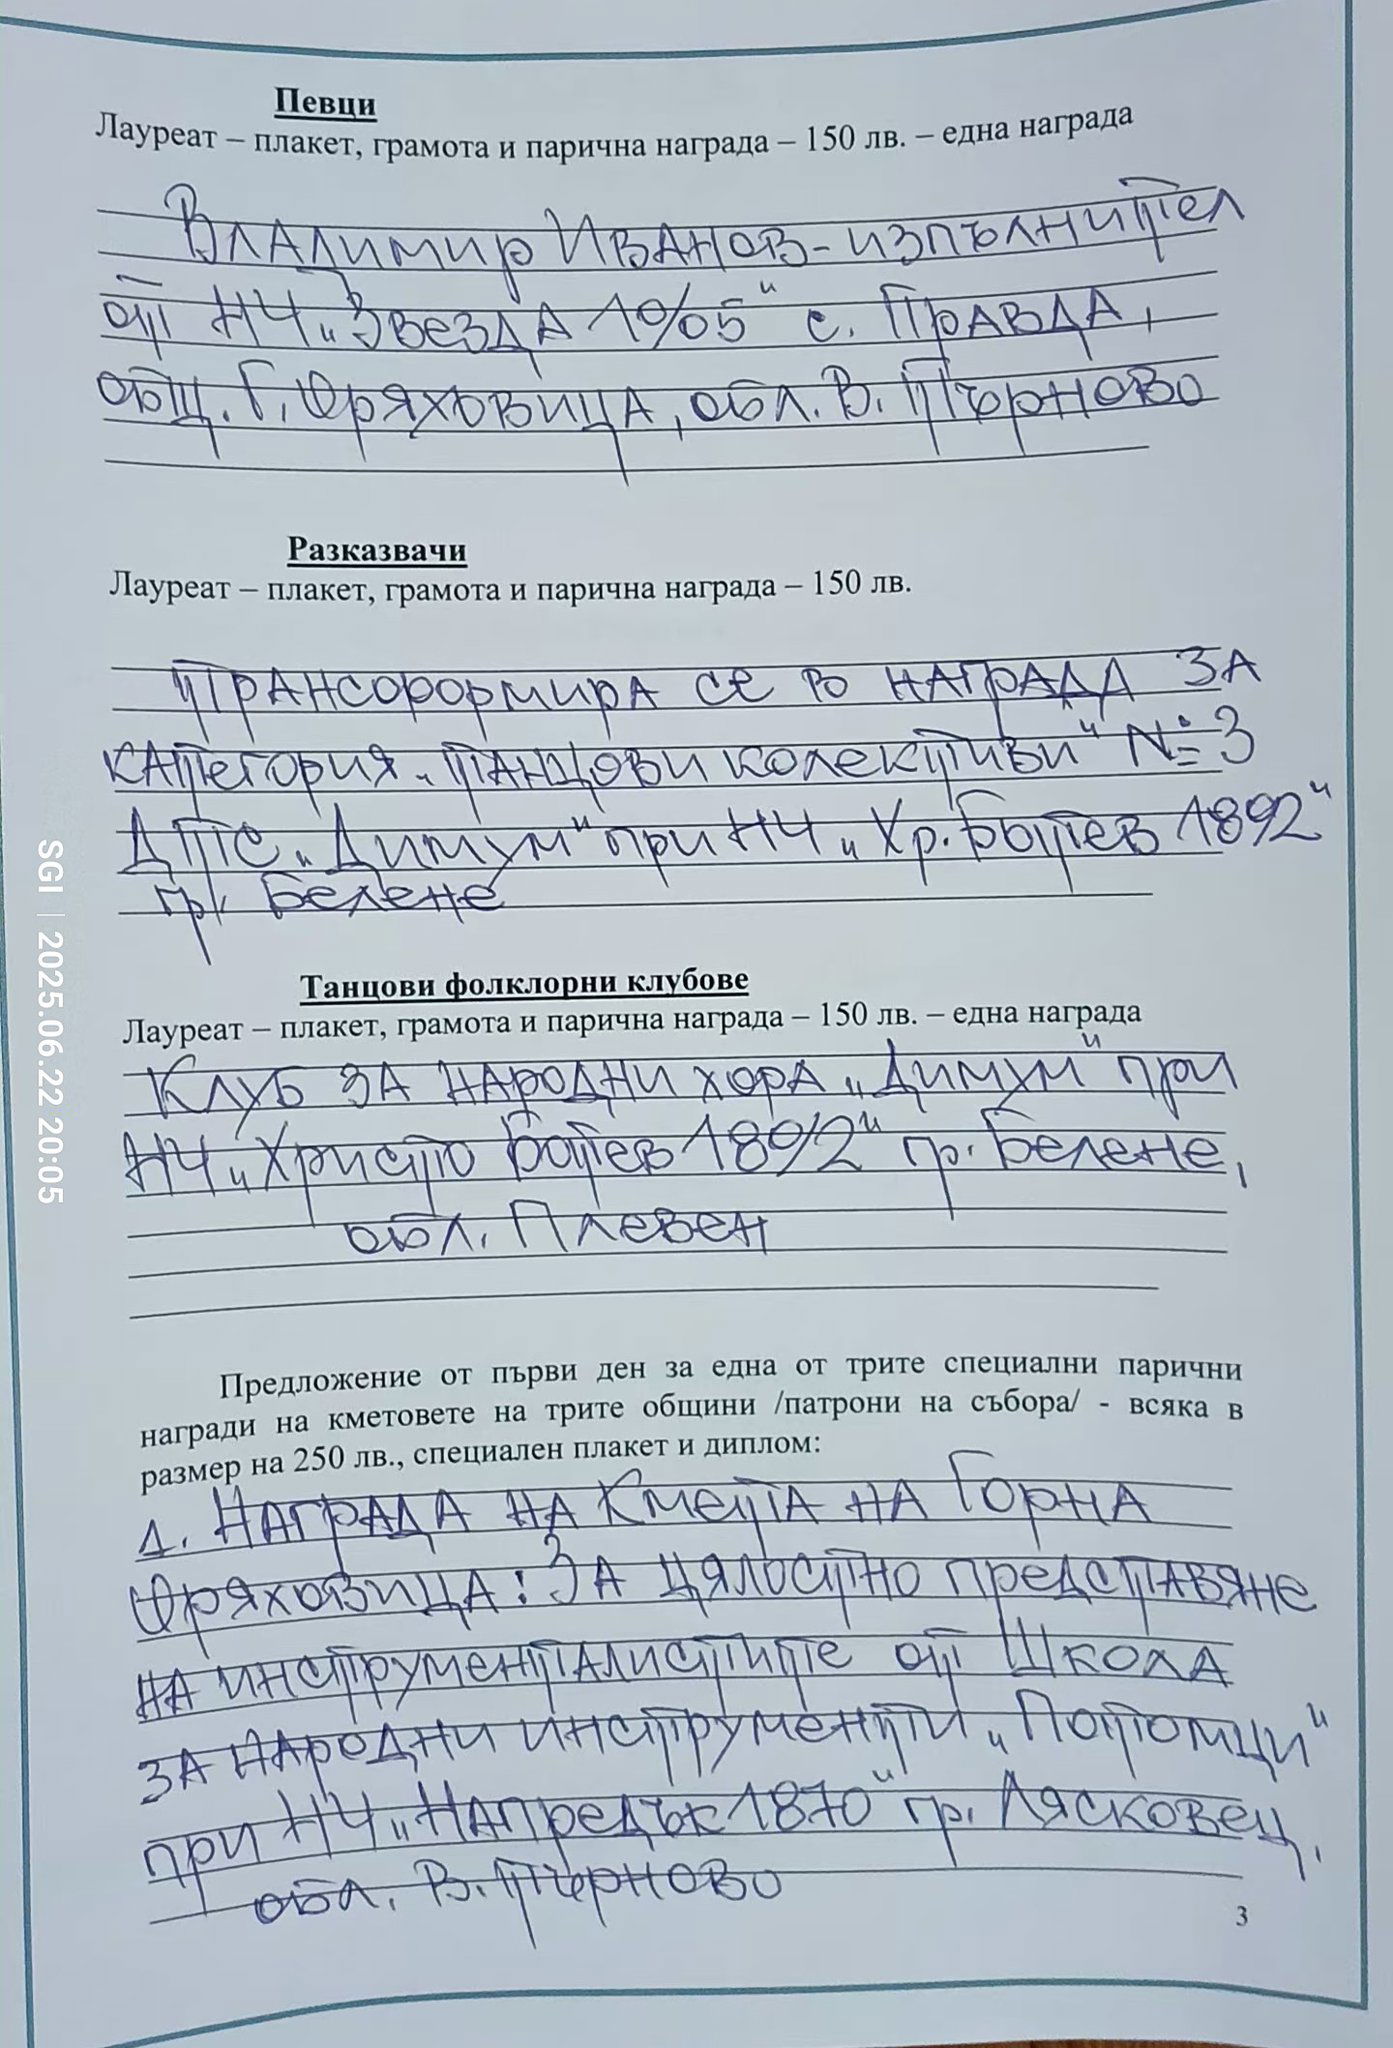 Певци
Лауреат – плакет, грамота и парична награда – 150 лв. – една награда
Владимир Иванов - изпълнител
от НЧ „Звезда 1905“ с. Правда,
общ. Г. Оряховица, обл. В. Търново
Разказвачи
Лауреат – плакет, грамота и парична награда – 150 лв.
Трансформира се в награда за
категория „Танцови колективи“ №3
ДТС „Димум“ при НЧ „Хр. Ботев 1892“
гр. Белене
Танцови фолклорни клубове
Лауреат – плакет, грамота и парична награда – 150 лв. – една награда
Клуб за народни хора „Димум“ при
НЧ „Христо Ботев 1892“ гр. Белене,
обл. Плевен
Предложение от първи ден за една от трите специални парични
награди на кметовете на трите общини /патрони на събора/ - всяка в
размер на 250 лв., специален плакет и диплом:
1. Награда на Кмета на Горна
Оряховица: За цялостно представяне
на инструменталистите от Школа
за народни инструменти „Потомци“
при НЧ „Напредък 1870“ гр. Лясковец,
обл. В. Търново
3
SGI | 2025.06.22 20:05